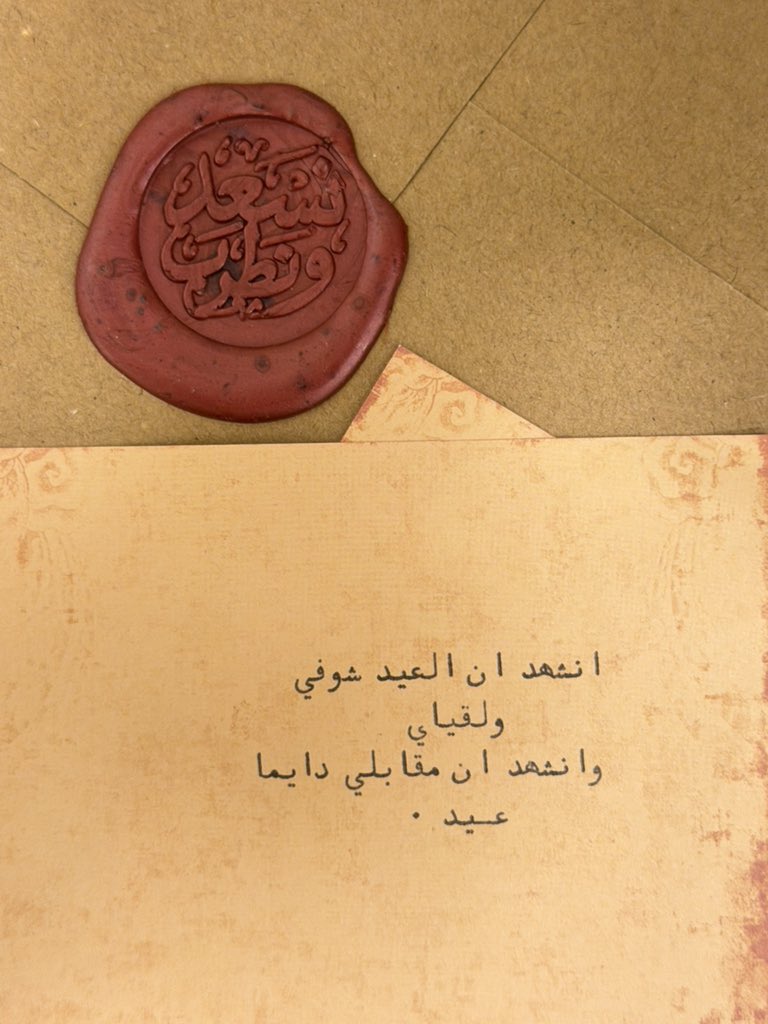 نسعد
ونطرب
انشهد ان العيد شوفي
ولقياي
وانشهد ان مقابلي دايما
عيد .